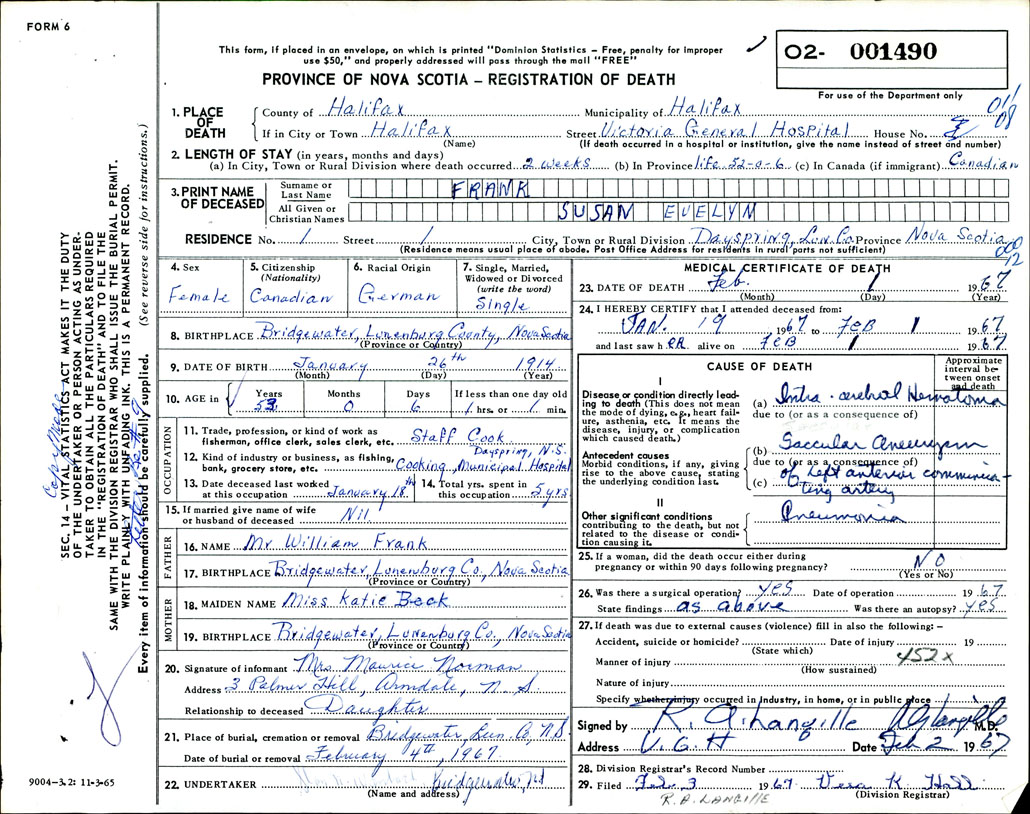 FORM 6
This form, if placed in an envelope, on which is printed "Dominion Statistics – Free, penalty for improper
use $50," and properly addressed will pass through the mail "FREE"
PROVINCE OF NOVA SCOTIA – REGISTRATION OF DEATH
O2- 001490
For use of the Department only
1. PLACE OF DEATH
County of Halifax Municipality of Halifax
If in City or Town Halifax Street Victoria General Hospital House No.
(Name) (If death occurred in a hospital or institution, give the name instead of street and number)
2. LENGTH OF STAY (in years, months and days)
(a) In City, Town or Rural Division where death occurred 2 weeks (b) In Province life 52-0-6 (c) In Canada (if immigrant) Canadian
3. PRINT NAME OF DECEASED
Surname or Last Name FRANK
All Given or Christian Names SUSAN EVELYN
RESIDENCE No. / Street / City, Town or Rural Division Dayspring, Lun. Co. Province Nova Scotia
(Residence means usual place of abode. Post Office Address for residents in rural parts not sufficient)
4. Sex
Female
5. Citizenship
(Nationality)
Canadian
6. Racial Origin
German
7. Single, Married,
Widowed or Divorced
(write the word)
Single
8. BIRTHPLACE Bridgewater, Lunenburg County, Nova Scotia
(Province or Country)
9. DATE OF BIRTH January 26th 1914
(Month) (Day) (Year)
10. AGE in
Years Months Days If less than one day old
53 0 6 / hrs. or / min.
OCCUPATION
11. Trade, profession, or kind of work as
fisherman, office clerk, sales clerk, etc. Staff Cook
Dayspring, N.S.
12. Kind of industry or business, as fishing,
bank, grocery store, etc. Cooking, Municipal Hospital
13. Date deceased last worked
at this occupation January 18th
14. Total yrs. spent in
this occupation 5 yrs
15. If married give name of wife
or husband of deceased Nil
FATHER
16. NAME Mr William Frank
17. BIRTHPLACE Bridgewater, Lunenburg Co., Nova Scotia
(Province or Country)
MOTHER
18. MAIDEN NAME Miss Katie Beck
19. BIRTHPLACE Bridgewater, Lunenburg Co., Nova Scotia
(Province or Country)
20. Signature of informant Mrs. Maurice Norman
Address 3 Palmer Hill, Armdale, N.S.
Relationship to deceased Daughter
21. Place of burial, cremation or removal Bridgewater, Lun. Co. N.S.
Date of burial or removal February 4th, 1967
22. UNDERTAKER Bridgewater
(Name and address)
MEDICAL CERTIFICATE OF DEATH
23. DATE OF DEATH Feb. 1 1967
(Month) (Day) (Year)
24. I HEREBY CERTIFY that I attended deceased from:
JAN. 19 1967 to FEB 1 1967
and last saw h ER alive on FEB 1 1967
CAUSE OF DEATH
Approximate
interval be-
tween onset
and death
I
Disease or condition directly lead-
ing to death (This does not mean
the mode of dying, e.g., heart fail-
ure, asthenia, etc. It means the
disease, injury, or complication
which caused death.)
(a) Intra-cerebral Hematoma
due to (or as a consequence of)
Antecedent causes
Morbid conditions, if any, giving
rise to the above cause, stating
the underlying condition last.
(b) Saccular aneurysm
due to (or as a consequence of)
(c) of left anterior communica-
ting artery
II
Other significant conditions
contributing to the death, but not
related to the disease or condi-
tion causing it.
Pneumonia
25. If a woman, did the death occur either during
pregnancy or within 90 days following pregnancy? NO
(Yes or No)
26. Was there a surgical operation? yes Date of operation 1967
State findings as above Was there an autopsy? yes
27. If death was due to external causes (violence) fill in also the following: –
Accident, suicide or homicide? Date of injury 19
(State which)
Manner of injury 452X
(How sustained)
Nature of injury
Specify whether injury occurred in Industry, in home, or in public place
Signed by R. A. Langille M.D.
Address V.G.H Date Feb 2 1967
28. Division Registrar's Record Number
29. Filed Feb. 3 1967
(Division Registrar)
R. A. LANGILLE
SEC. 14 – VITAL STATISTICS ACT MAKES IT THE DUTY
OF THE UNDERTAKER OR PERSON ACTING AS UNDER-
TAKER TO OBTAIN ALL THE PARTICULARS REQUIRED
IN THE "REGISTRATION OF DEATH" AND TO FILE THE
SAME WITH THE DIVISION REGISTRAR WHO SHALL ISSUE THE BURIAL PERMIT.
WRITE PLAINLY WITH UNFADING INK. THIS IS A PERMANENT RECORD.
Every item of information should be carefully supplied. (See reverse side for instructions.)
9004-3.2: 11-3-65